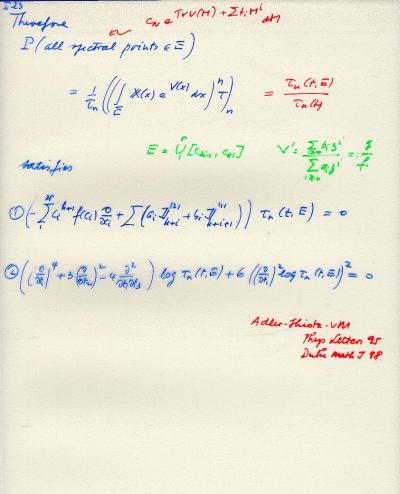 I-23
Therefore
c_N e^{Tr V(M) + Σ t_i M^i} dM
P(all spectral points ∈ E)
= 1/τ_n ((∫_E X(x) e^{V(x)} dx)^n τ)_n = τ_n(t, E)/τ_n(t)
E = ⋃_1^r [c_{2i-1}, c_{2i}] V' = Σ b_i z^i / Σ a_i z^i =: g/f
satisfies
① (-Σ_1^{2r} c_i^{k+1} f(c_i) ∂/∂c_i + Σ (a_i J^{(2)}_{k+i} + b_i J^{(1)}_{k+i+1})) τ_n(t, E) = 0
② ((∂/∂t_1)^4 + 3(∂/∂t_2)^2 - 4 ∂²/∂t_1∂t_3) log τ_n(t, E) + 6((∂/∂t_1)^2 log τ_n(t, E))^2 = 0
Adler-Shiota-vM
Phys Letters 95
Duke Math J 98